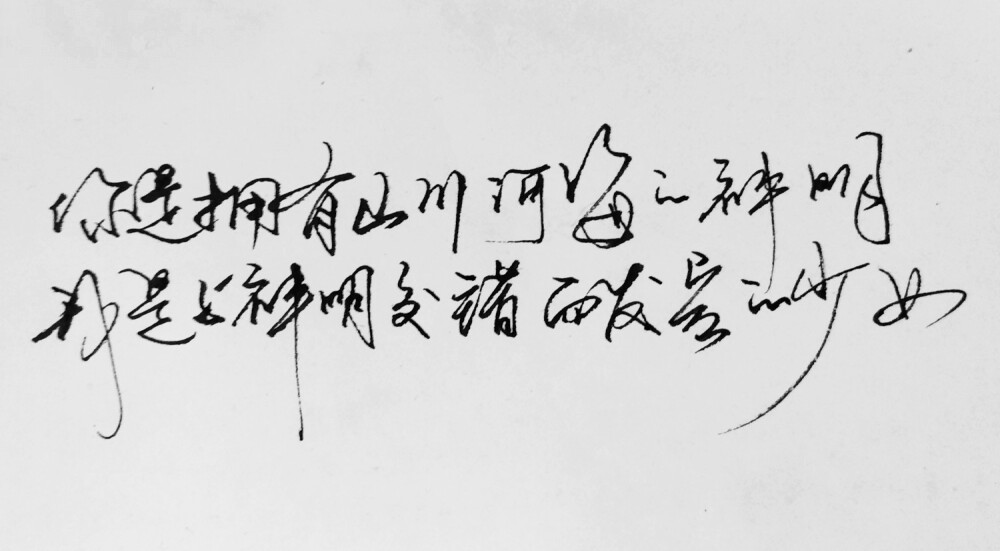 你是拥有山川河海的神明
我是与神明交错而发芒的少女